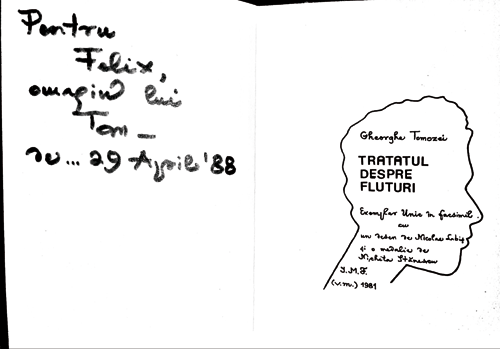 Pentru
Felix,
omagiu lui
Tom _
de... 29 April '88
Gheorghe Tomozei
TRATATUL
DESPRE
FLUTURI
Exemplar Unic în facsimil
cu
un desen de Nicolae Labiș
și o medalie de
Nichita Stănescu
I.M.F.
(v.m.) 1981